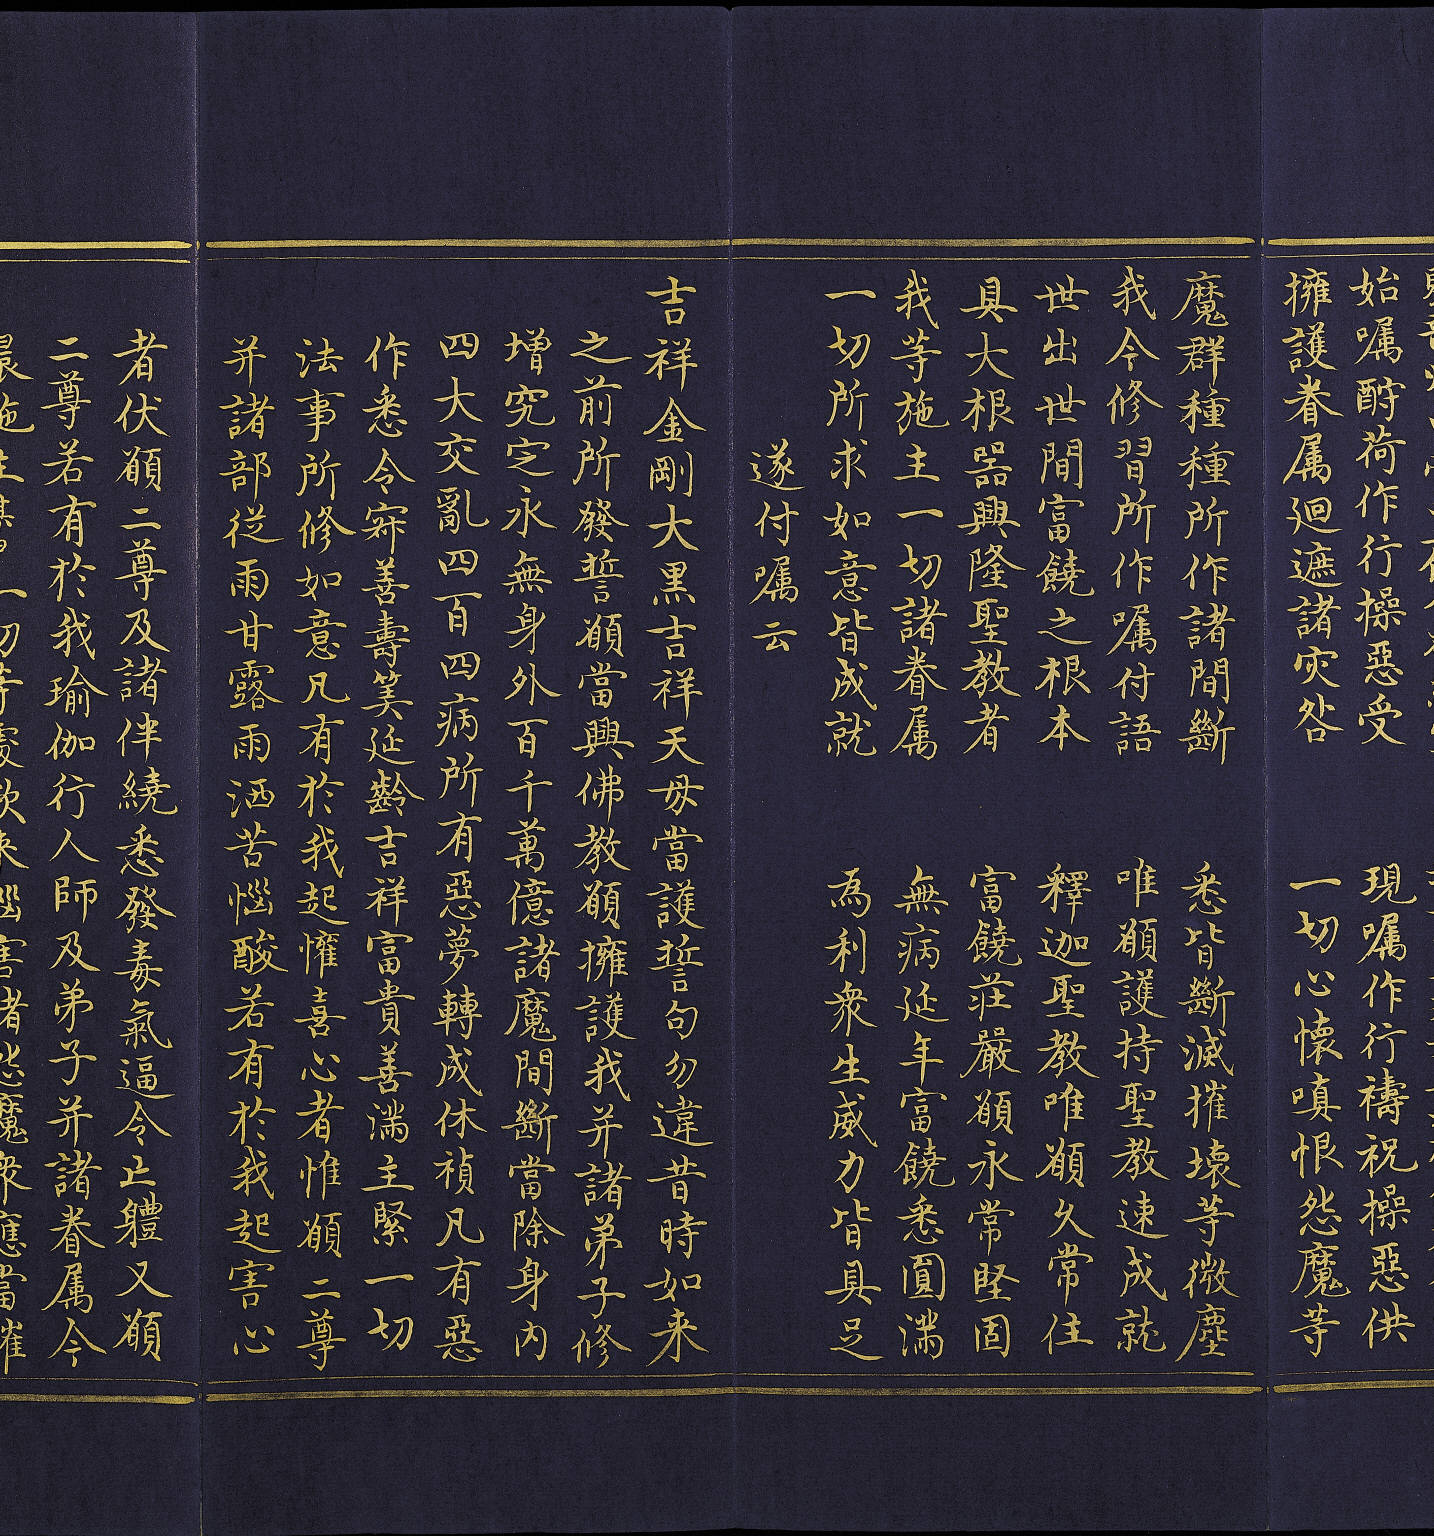 始嘱酹荷作行操惡受　現嘱作行禱祝操惡供
擁護眷属廻遮諸灾咎　一切心懷嗔恨怨魔等
魔群種種所作諸間斷　悉皆斷滅摧壞等微塵
我今修習所作嘱付語　唯願護持聖教速成就
世出世間富饒之根本　釋迦聖教唯願久常住
具大根器興隆聖教者　富饒莊嚴願永常堅固
我等施主一切諸眷属　無病延年富饒悉圓滿
一切所求如意皆成就　為利衆生威力皆具足
遂付嘱云
吉祥金剛大黑吉祥天母當護誓句勿違昔時如来
之前所發誓願當興佛教願擁護我并諸弟子修
增究定永無身外百千萬億諸魔間斷當除身内
四大交亂四百四病所有惡夢轉成休禎凡有惡
作悉令寂善壽筭延齡吉祥富貴善滿主緊一切
法事所修如意凡有於我起懽喜心者惟願二尊
并諸部從雨甘露雨洒苦惱酸若有於我起害心
者伏願二尊及諸伴繞悉發毒氣逼令亡軆又願
二尊若有於我瑜伽行人師及弟子并諸眷属今